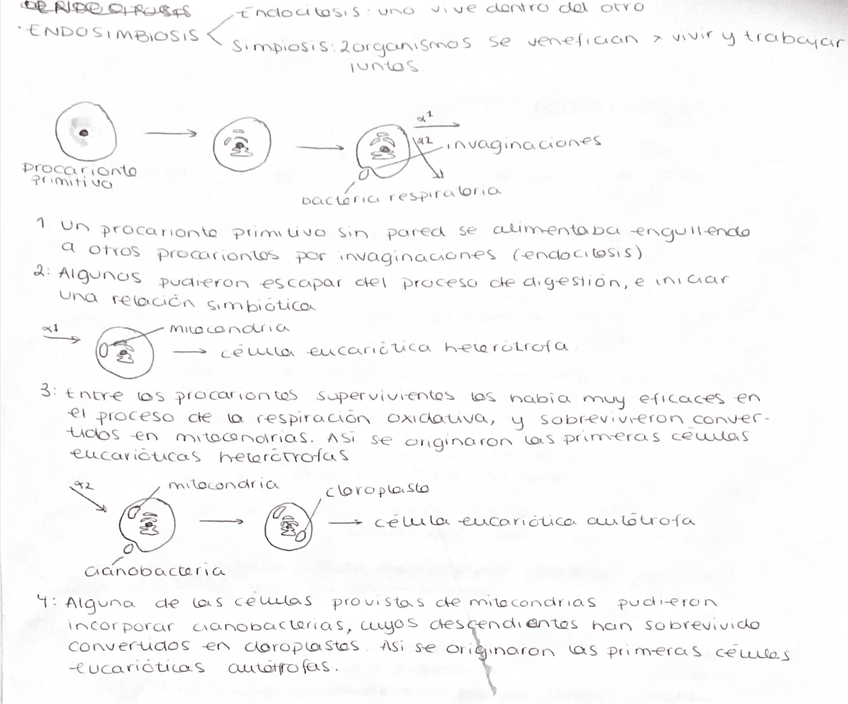 Endocitosis: uno vive dentro del otro
· ENDOSIMBIOSIS
Simpiosis: 2 organismos se venefician x vivir y trabajar
juntos.
α1
α2
invaginaciones
procarionte
primitivo
bacteria respiratoria
1 Un procarionte primitivo sin pared se alimentaba engullendo
a otros procariontes por invaginaciones (endocitosis)
2: Algunos pudieron escapar del proceso de digestión, e iniciar
una relación simbiótica
α1
mitocondria
célula eucariótica heterótrofa.
3: Entre los procariontes supervivientes los había muy eficaces en
el proceso de la respiración oxidativa, y sobrevivieron conver-
tidos en mitocondrias. Así se originaron las primeras células
eucarióticas heterótrofas
α2
mitocondria
cloroplasto
célula eucariótica autótrofa
cianobacteria
4: Alguna de las células provistas de mitocondrias pudieron
incorporar cianobacterias, cuyos descendientes han sobrevivido
convertidos en cloroplastos. Así se originaron las primeras células
eucarióticas autótrofas.